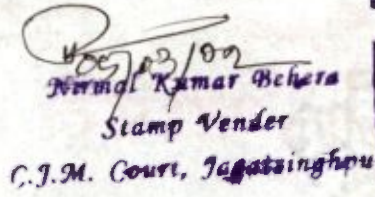 05/03/02
Nirmal Kumar Behera
Stamp Vender
C.J.M. Court, Jagatsinghpu